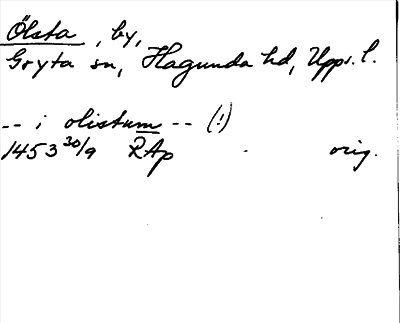 Ölsta, by,
Gryta sn, Hagunda hd, Upps. l.
-- i olistum -- (!)
1453 30/9 RAp orig.